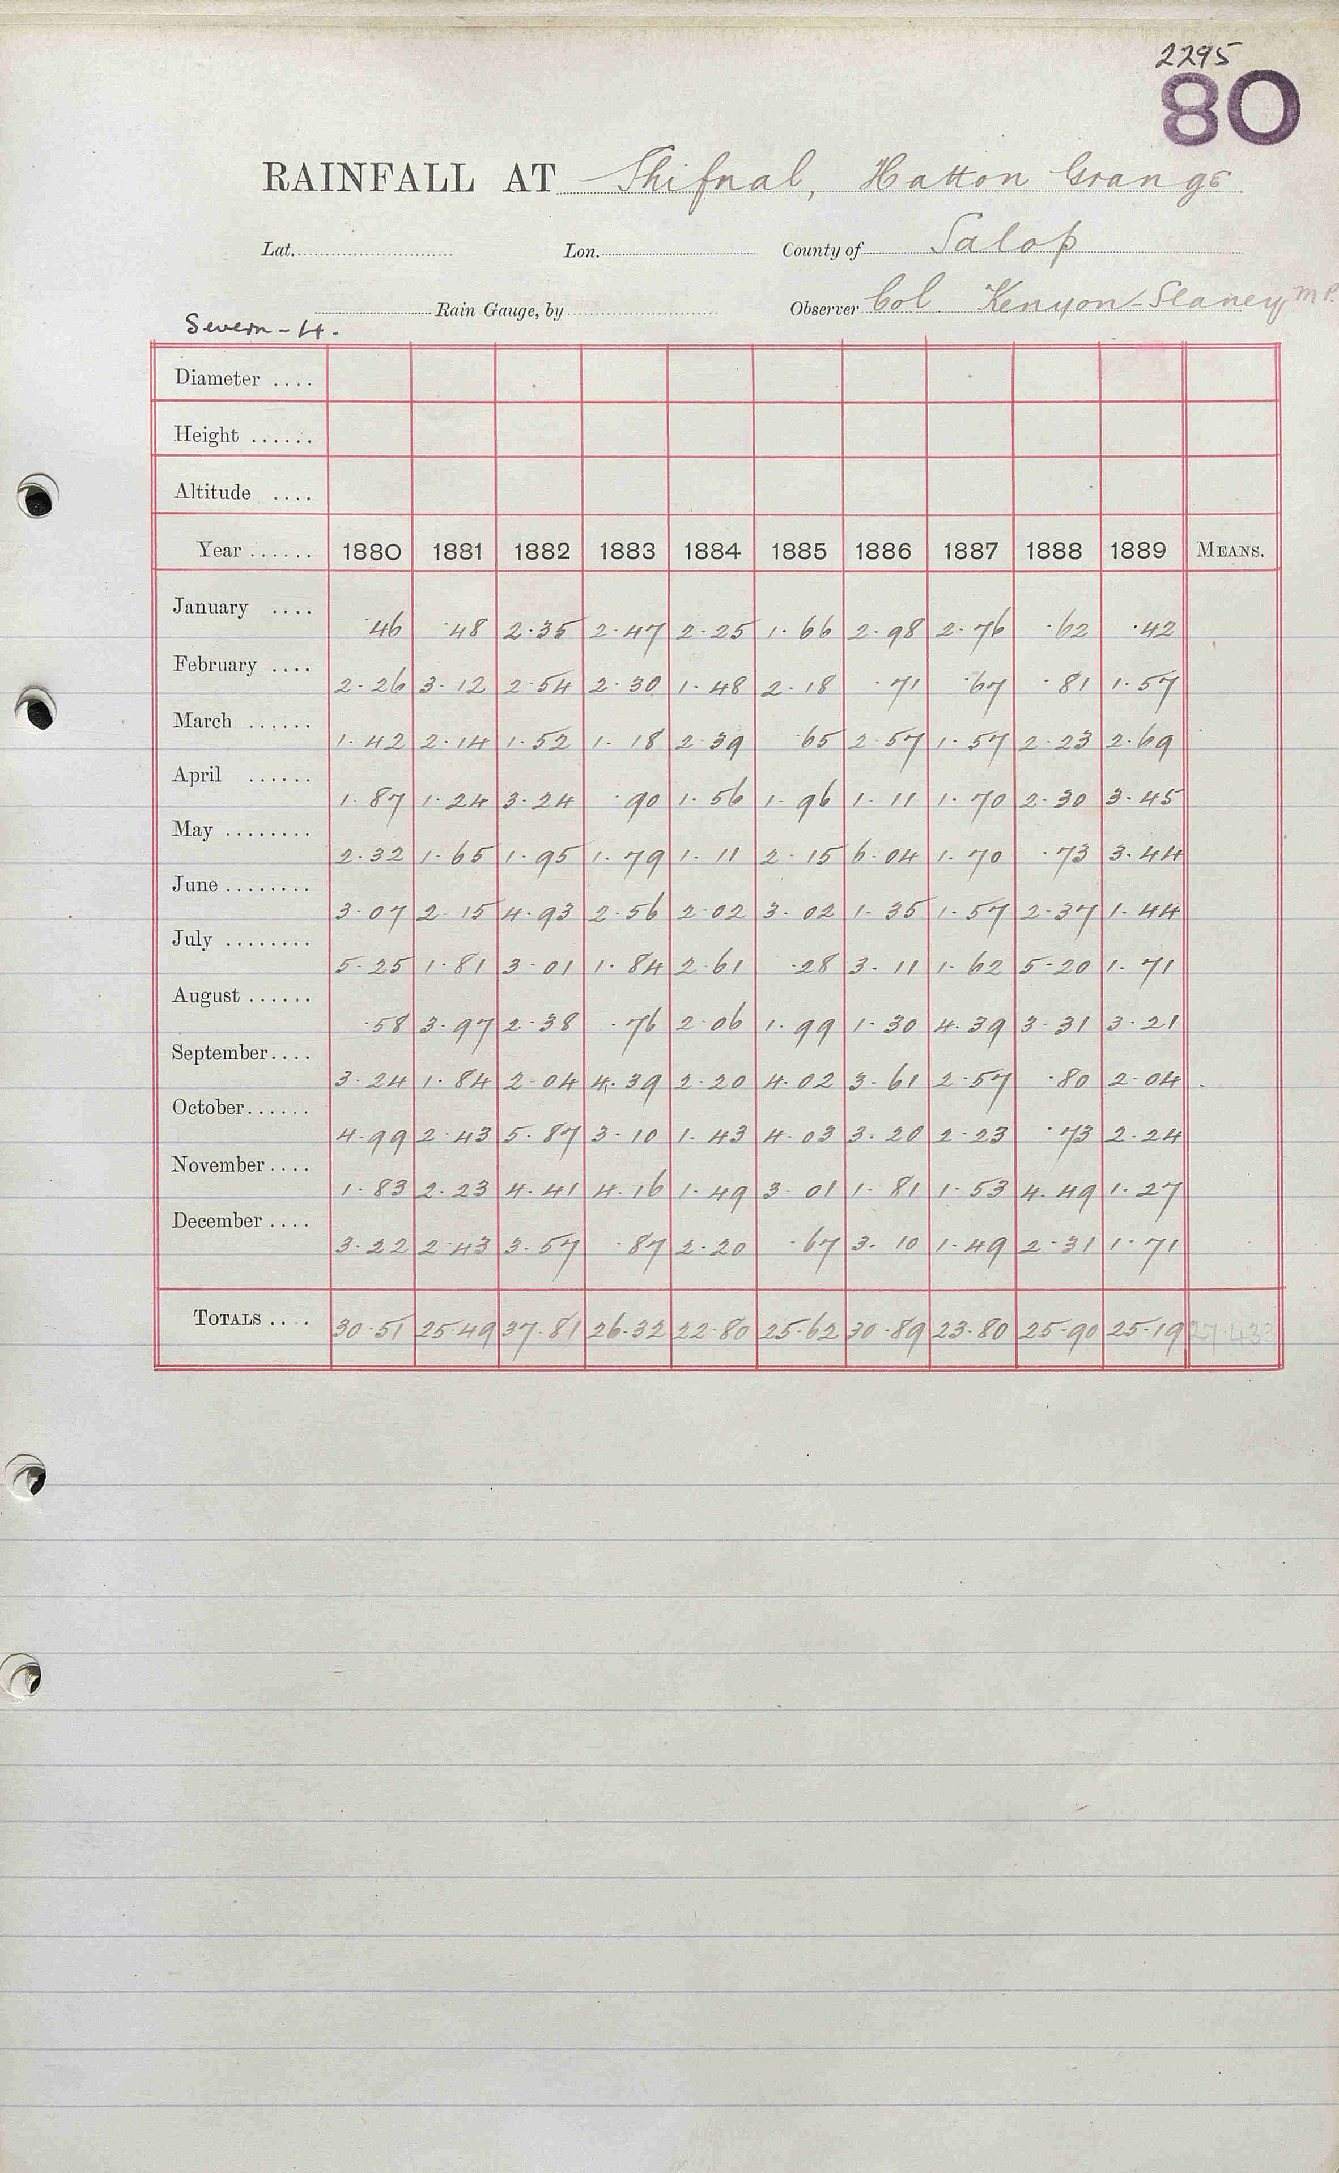 2295
80
RAINFALL AT Shifnal, Hatton Grange
Lat. Lon. County of Salop
Rain Gauge, by Observer Col. Kenyon-Slaney M.P.
Severn - 4.
Diameter ....
Height ......
Altitude ....
Year ...... 1880 1881 1882 1883 1884 1885 1886 1887 1888 1889 MEANS.
January .... ·46 ·48 2·35 2·47 2·25 1·66 2·98 2·76 ·62 ·42
February .... 2·26 3·12 2·54 2·30 1·48 2·18 ·71 ·67 ·81 1·57
March ...... 1·42 2·14 1·52 1·18 2·39 ·65 2·57 1·57 2·23 2·69
April ...... 1·87 1·24 3·24 ·90 1·56 1·96 1·11 1·70 2·30 3·45
May ........ 2·32 1·65 1·95 1·79 1·11 2·15 6·04 1·70 ·73 3·44
June ........ 3·07 2·15 4·93 2·56 2·02 3·02 1·35 1·57 2·37 1·44
July ........ 5·25 1·81 3·01 1·84 2·61 ·28 3·11 1·62 5·20 1·71
August ...... ·58 3·97 2·38 ·76 2·06 1·99 1·30 4·39 3·31 3·21
September.... 3·24 1·84 2·04 4·39 2·20 4·02 3·61 2·57 ·80 2·04
October...... 4·99 2·43 5·87 3·10 1·43 4·03 3·20 2·23 ·73 2·24
November .... 1·83 2·23 4·41 4·16 1·49 3·01 1·81 1·53 4·49 1·27
December .... 3·22 2·43 3·57 ·87 2·20 ·67 3·10 1·49 2·31 1·71
TOTALS .... 30·51 25·49 37·81 26·32 22·80 25·62 30·89 23·80 25·90 25·19 27·433